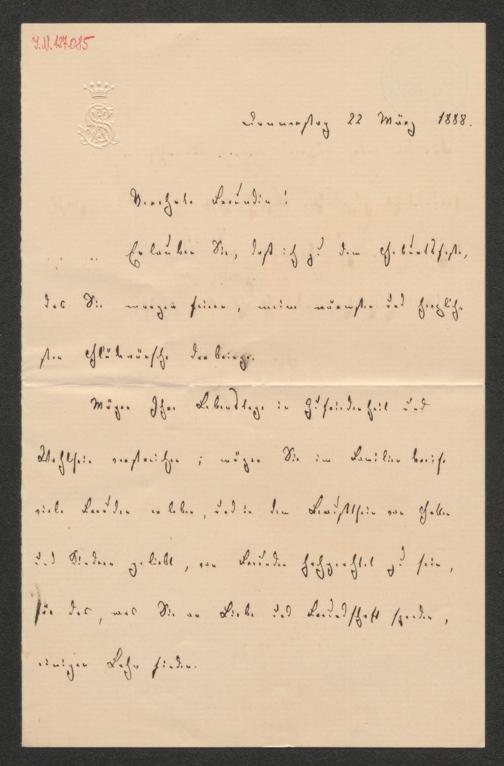 I.N. 127.085
Donnerstag 22 März 1888.
Verehrte Freundin!
Erlauben Sie, daß ich zu dem Geburtsfeste,
das Sie morgen feiern, meine wärmsten und herzlich-
sten Glückwünsche darbringe.
Mögen Ihre Lebenstage in Zufriedenheit und
Wohlsein verstreichen; mögen Sie im Familienkreise
viele Freuden erleben, und in dem Bewußtsein von Gatten
und Kindern geliebt, von Freunden hochgeachtet zu sein,
für das, was Sie an Liebe und Freundschaft spenden,
einigen Lohn finden.